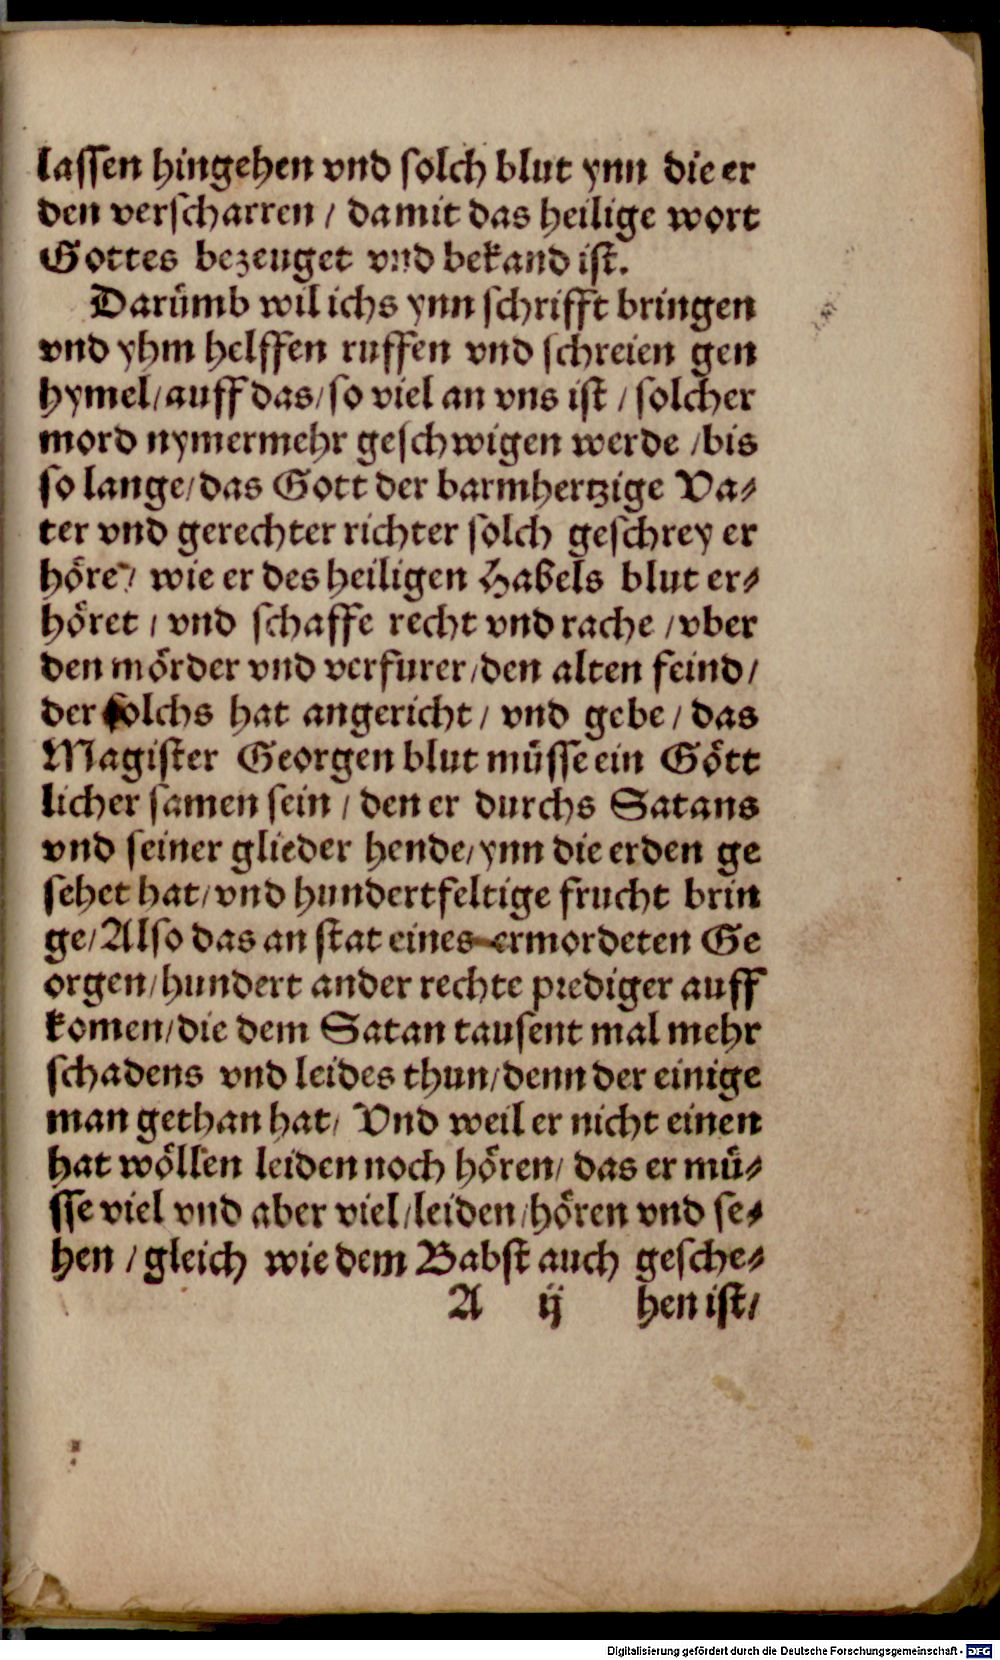 lassen hingehen vnd solch blut ynn die er
den verscharren / damit das heilige wort
Gottes bezeuget vnd bekand ist.
Darümb wil ichs ynn schrifft bringen
vnd yhm helffen ruffen vnd schreien gen
hymel / auff das / so viel an vns ist / solcher
mord nymermehr geschwigen werde / bis
so lange / das Gott der barmhertzige Va⸗
ter vnd gerechter richter solch geschrey er
höre / wie er des heiligen Habels blut er⸗
höret / vnd schaffe recht vnd rache / vber
den mörder vnd verfurer / den alten feind /
der solchs hat angericht / vnd gebe / das
Magister Georgen blut müsse ein Gött
licher samen sein / den er durchs Satans
vnd seiner glieder hende / ynn die erden ge
sehet hat / vnd hundertfeltige frucht brin
ge / Also das an stat eines ermordeten Ge
orgen / hundert ander rechte prediger auff
komen / die dem Satan tausent mal mehr
schadens vnd leides thun / denn der einige
man gethan hat / Vnd weil er nicht einen
hat wöllen leiden noch hören / das er mü⸗
sse viel vnd aber viel / leiden / hören vnd se⸗
hen / gleich wie dem Babst auch gesche⸗
A ij hen ist /
Digitalisierung gefördert durch die Deutsche Forschungsgemeinschaft - DFG